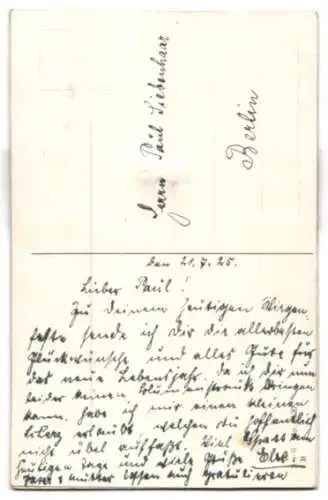 Herrn Paul Liebenhaar
Berlin
den 21.7.25.
Lieber Paul!
Zu deinem heutigen Wiegen-
feste sende ich Dir die allerbesten
Glückwünsche und alles Gute für
das neue Lebensjahr. Da ich Dir nun
leider keinen Blumenstrauß bringen
kann, habe ich mir einen kleinen
erlaubt, welchen du hoffentlich
nicht übel auffaßt. Viel am
heutigen Tage und viele Grüße
Vater & Mutter lassen auch gratulieren